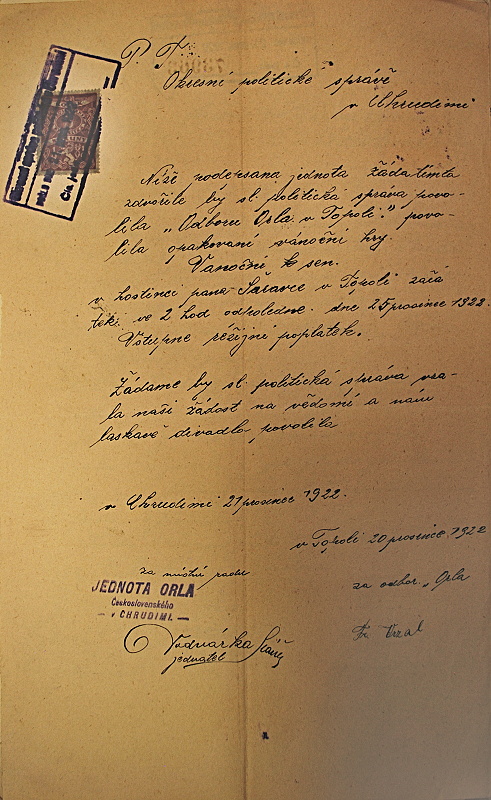 P. T.
Okresní politické správě
v Chrudimi
Níže podepsana jednota žádá tímto
zdvořile by sl. politická správa povo-
lila „Odboru Orla v Topoli." povo-
lila opakovaní vánoční hry.
Vanoční sen.
v hostinci pana v Topoli začá
tek: ve 2 hod odpoledne. dne 25 prosince 1922.
Vstupne režijní poplatek.
Žádame by sl. politická správa vza-
la naši žádost na vědomí a nam
laskavě divadlo povolila
v Chrudimi 21 prosince 1922.
v Topoli 20 prosince 1922
za místní radu
za odbor „Orla
JEDNOTA ORLA
Československého
v CHRUDIMI.
Fr. Vrzal
Vodvárka
jednatel